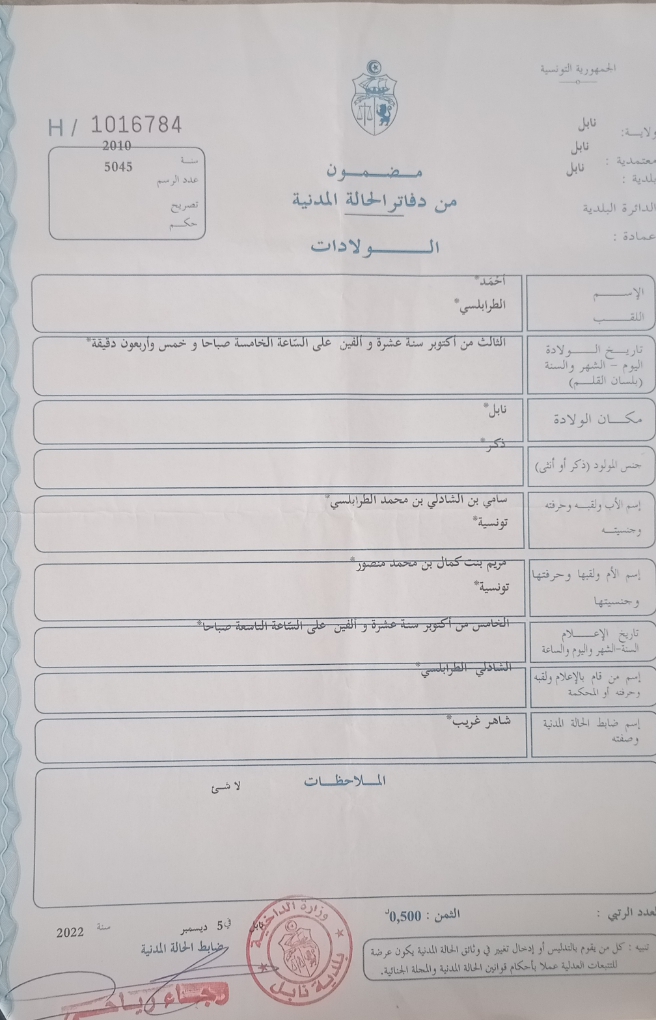 الجمهورية التونسية
ولاية: نابل
معتمدية : نابل
بلدية : نابل
الدائرة البلدية
عمادة :
H / 1016784
سنة 2010
عدد الرسم 5045
تصريح
حكم
مضمون
من دفاتر الحالة المدنية
الولادات
الإسم أحمد*
اللقب الطرابلسي*
تاريخ الولادة
اليوم – الشهر والسنة
(بلسان القلم)
الثالث من أكتوبر سنة عشرة و ألفين على السّاعة الخامسة صباحا و خمس وأربعون دقيقة*
مكان الولادة نابل*
جنس المولود (ذكر أو أنثى) ذكر*
إسم الأب ولقبه وحرفته سامي بن الشاذلي بن محمد الطرابلسي*
وجنسيته تونسية*
إسم الأم ولقبها وحرفتها مريم بنت كمال بن محمد منصور*
وجنسيتها تونسية*
تاريخ الإعلام
السنة-الشهر واليوم والساعة
الخامس من أكتوبر سنة عشرة و ألفين على السّاعة التاسعة صباحا*
إسم من قام بالإعلام ولقبه
وحرفته أو المحكمة
الشاذلي الطرابلسي*
إسم ضابط الحالة المدنية
وصفته
شاهر غريب*
الملاحظات
لا شئ
العدد الرتبي :
الثمن : 0,500د
في 5 ديسمبر سنة 2022
ضابط الحالة المدنية
وزارة الداخلية
بلدية نابل
رجاء رياحي
تنبيه : كل من يقوم بالتدليس أو إدخال تغيير في وثائق الحالة المدنية يكون عرضة
للتتبعات العدلية عملا بأحكام قوانين الحالة المدنية والمجلة الجنائية.